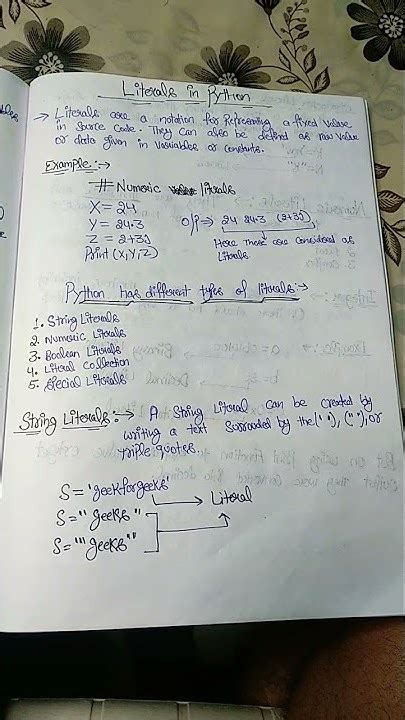 Literals in Python
→ Literals are a notation for Representing a fixed value
in Source Code. They can also be defined as raw value
or data given in variables or constants.
Example:→
# Numeric literals
X = 24
Y = 24.3
Z = 2+3j
Print (X,Y,Z)
o/p ⇒ 24 24.3 (2+3j)
Here These are Considered as
Literals
Python has different types of literals:→
1. String Literals
2. Numeric Literals
3. Boolean Literals
4. Literal Collection
5. Special Literals
String Literals:→ A String Literal can be created by
writing a text Surrounded by the (' '), (" "), or
triple quotes.
S = 'geekforgeeks'
S = " geeks "
S = "' geeks "'
→ Literal